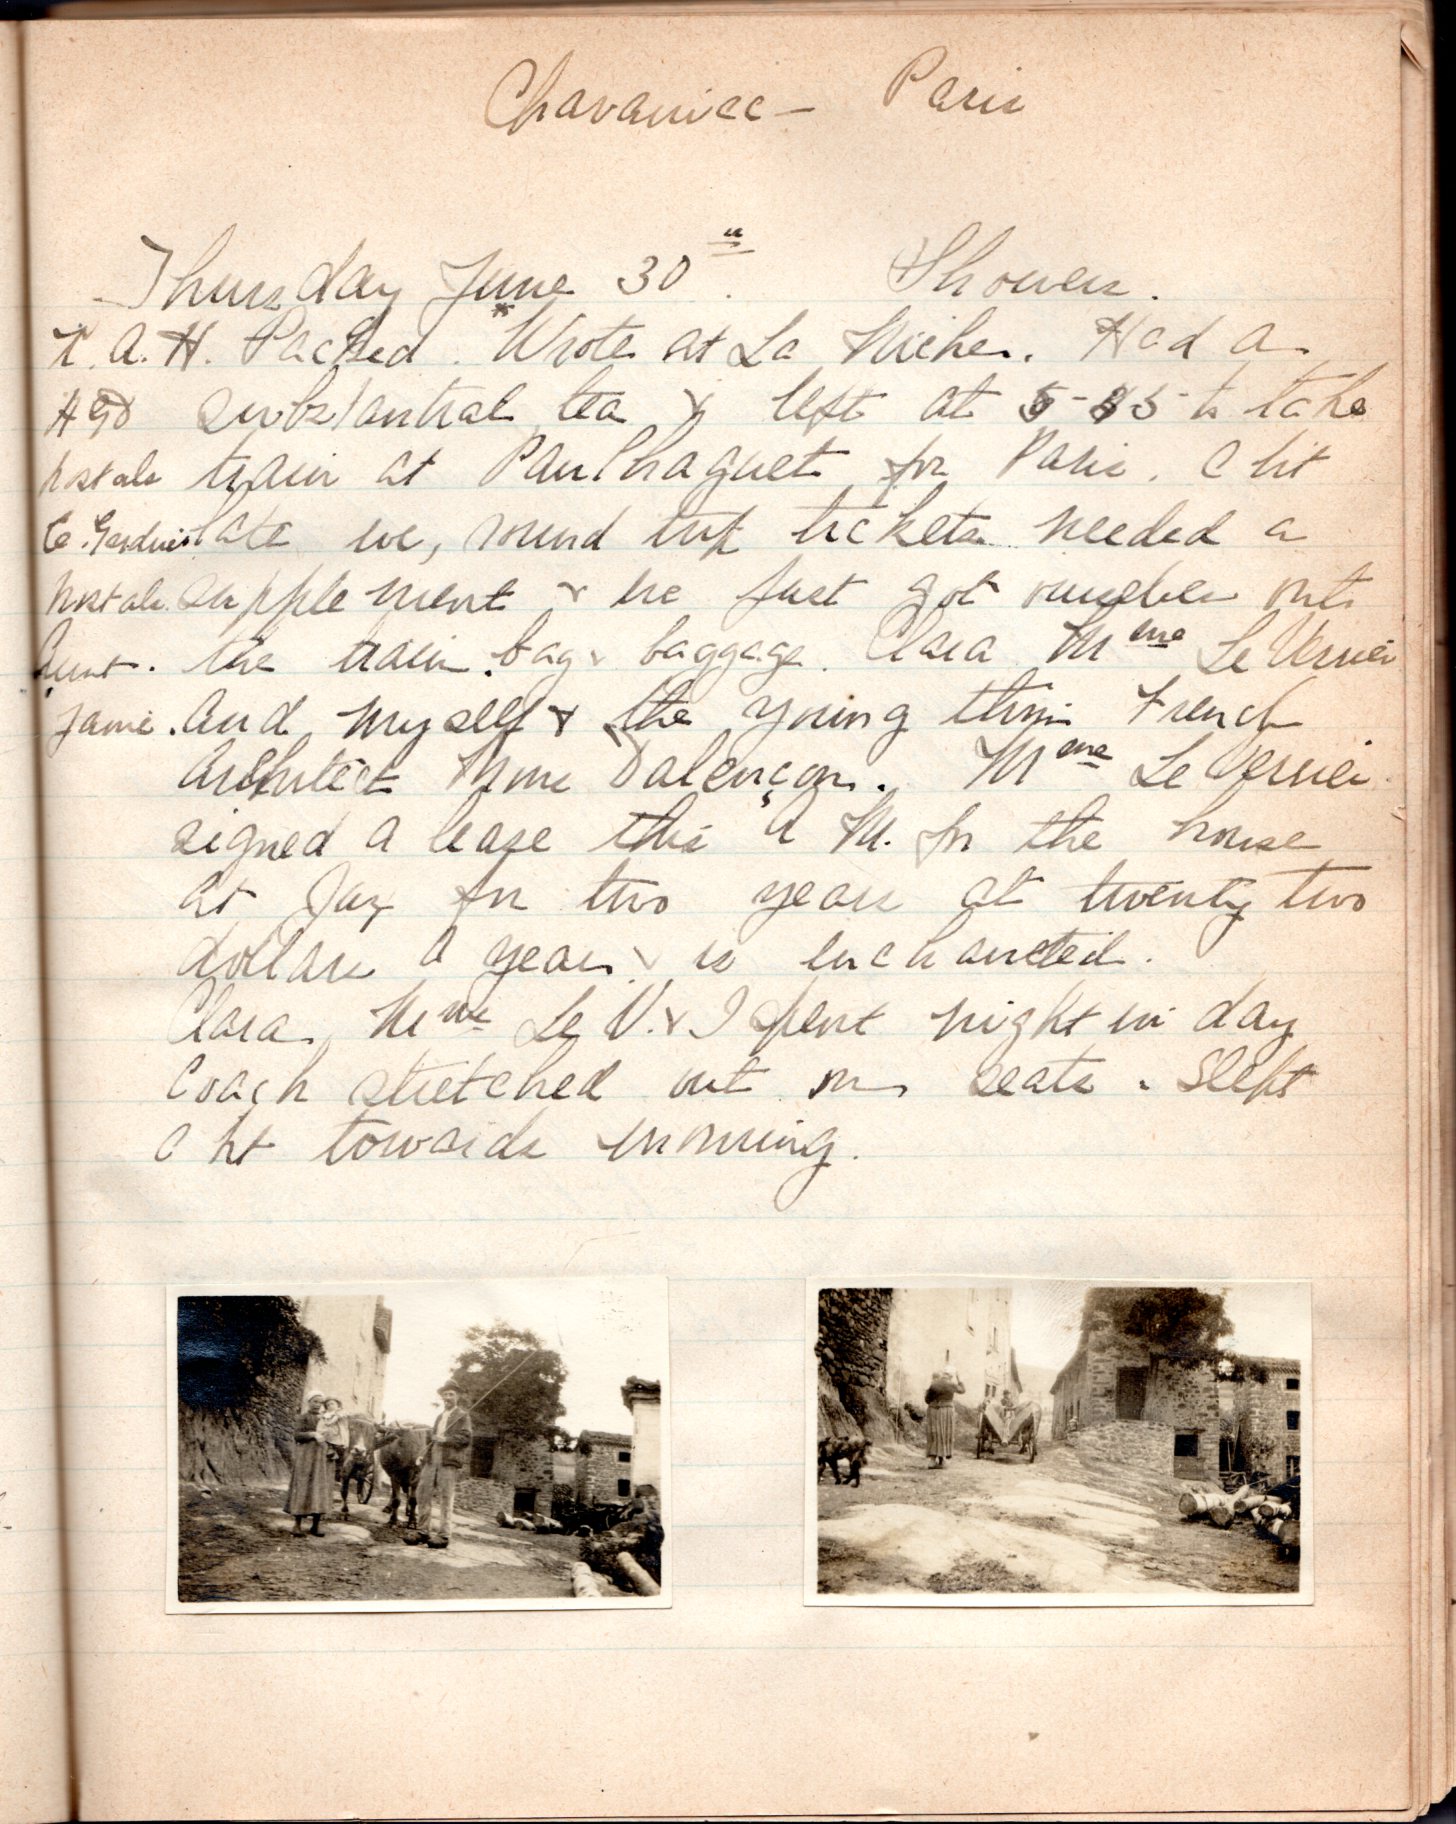 Chavaniac - Paris
Thursday June 30th. Showers.
K.A.H. Packed. Wrote at La Niche. Had a
substantial tea & left at 5-35 to take
postals train at Paulhaguet for Paris. A bit
late we, round trip tickets needed a
postals. supplement & we just got ourselves onto
Aunt. the train. bag & baggage. Clara Mme Le Verrier
Jamie. and myself & the young thin French
Architect Mme Dalençon. Mme Le Verrier
signed a lease this A M. for the house
at Jax for two years at twenty two
dollars a year & is enchanted.
Clara. Mme Le V. & I spent night in day
coach stretched out on seats. Slept
a bit towards morning.